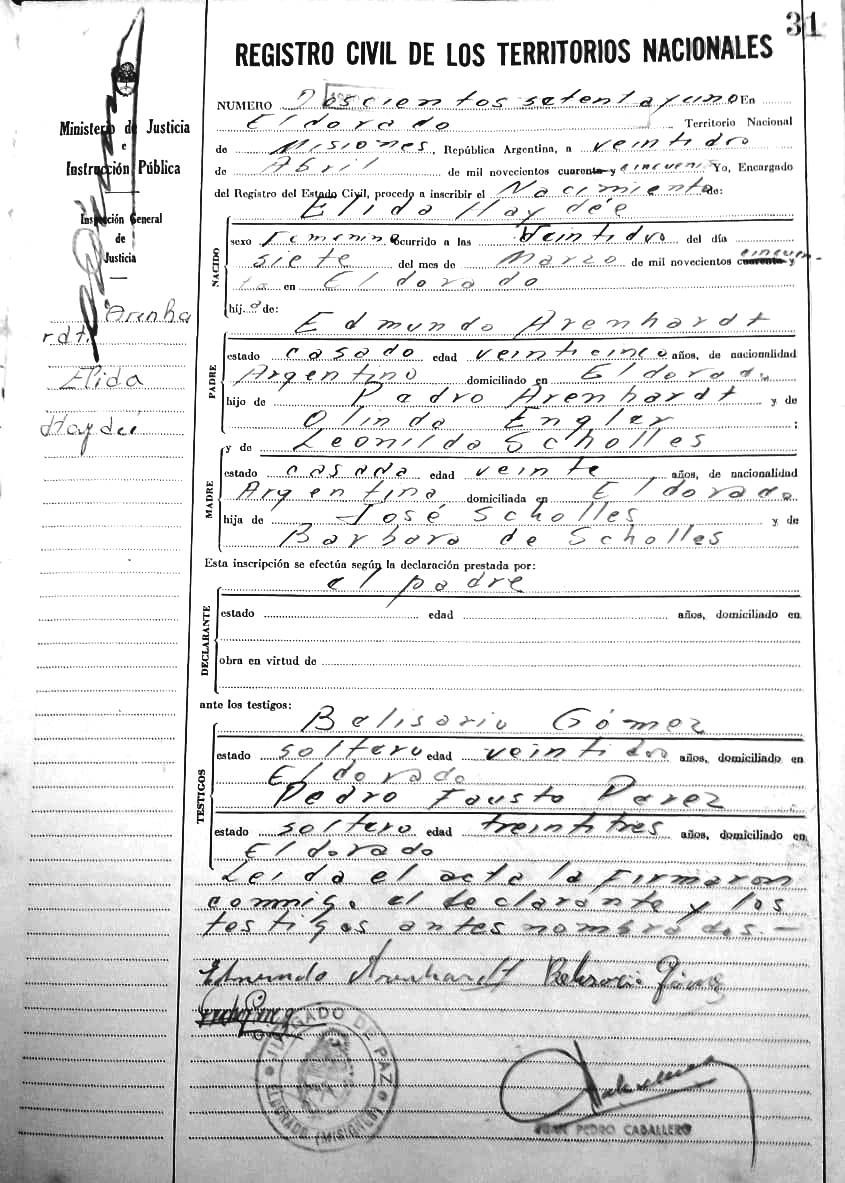 31
REGISTRO CIVIL DE LOS TERRITORIOS NACIONALES
Ministerio de Justicia
e
Instrucción Pública
Inspección General
de
Justicia
Arenha
rdt,
Elida
Haydeé
NUMERO Doscientos setentayuno En
Eldorado Territorio Nacional
de Misiones, República Argentina, a veintidos
de Abril de mil novecientos cuarenta y cincuenta Yo, Encargado
del Registro del Estado Civil, procedo a inscribir el Nacimiento de:
NACIDO
Elida Haydée
sexo Femenino ocurrido a las veintidos del día
siete del mes de Marzo de mil novecientos cuarenta y cincuen-
ta en Eldorado
hij a de:
PADRE
Edmundo Arenhardt
estado casado edad veinticinco años, de nacionalidad
Argentino domiciliado en Eldorado
hijo de Pedro Arenhardt y de
Olinda Engler ;
MADRE
y de Leonilda Scholles
estado casada edad veinte años, de nacionalidad
Argentina domiciliada en Eldorado
hija de José Scholles y de
Barbara de Scholles
Esta inscripción se efectúa según la declaración prestada por:
DECLARANTE
el padre
estado edad años, domiciliado en
obra en virtud de
ante los testigos:
TESTIGOS
Belisario Gómez
estado soltero edad veintidos años, domiciliado en
Eldorado
Pedro Fausto Perez
estado soltero edad treintitres años, domiciliado en
Eldorado
Leída el acta la firmaron
conmigo el declarante y los
testigos antes nombrados.-
Edmundo Arenhardt Belisario Gómez
JUZGADO DE PAZ
ELDORADO (MISIONES)
JUAN PEDRO CABALLERO